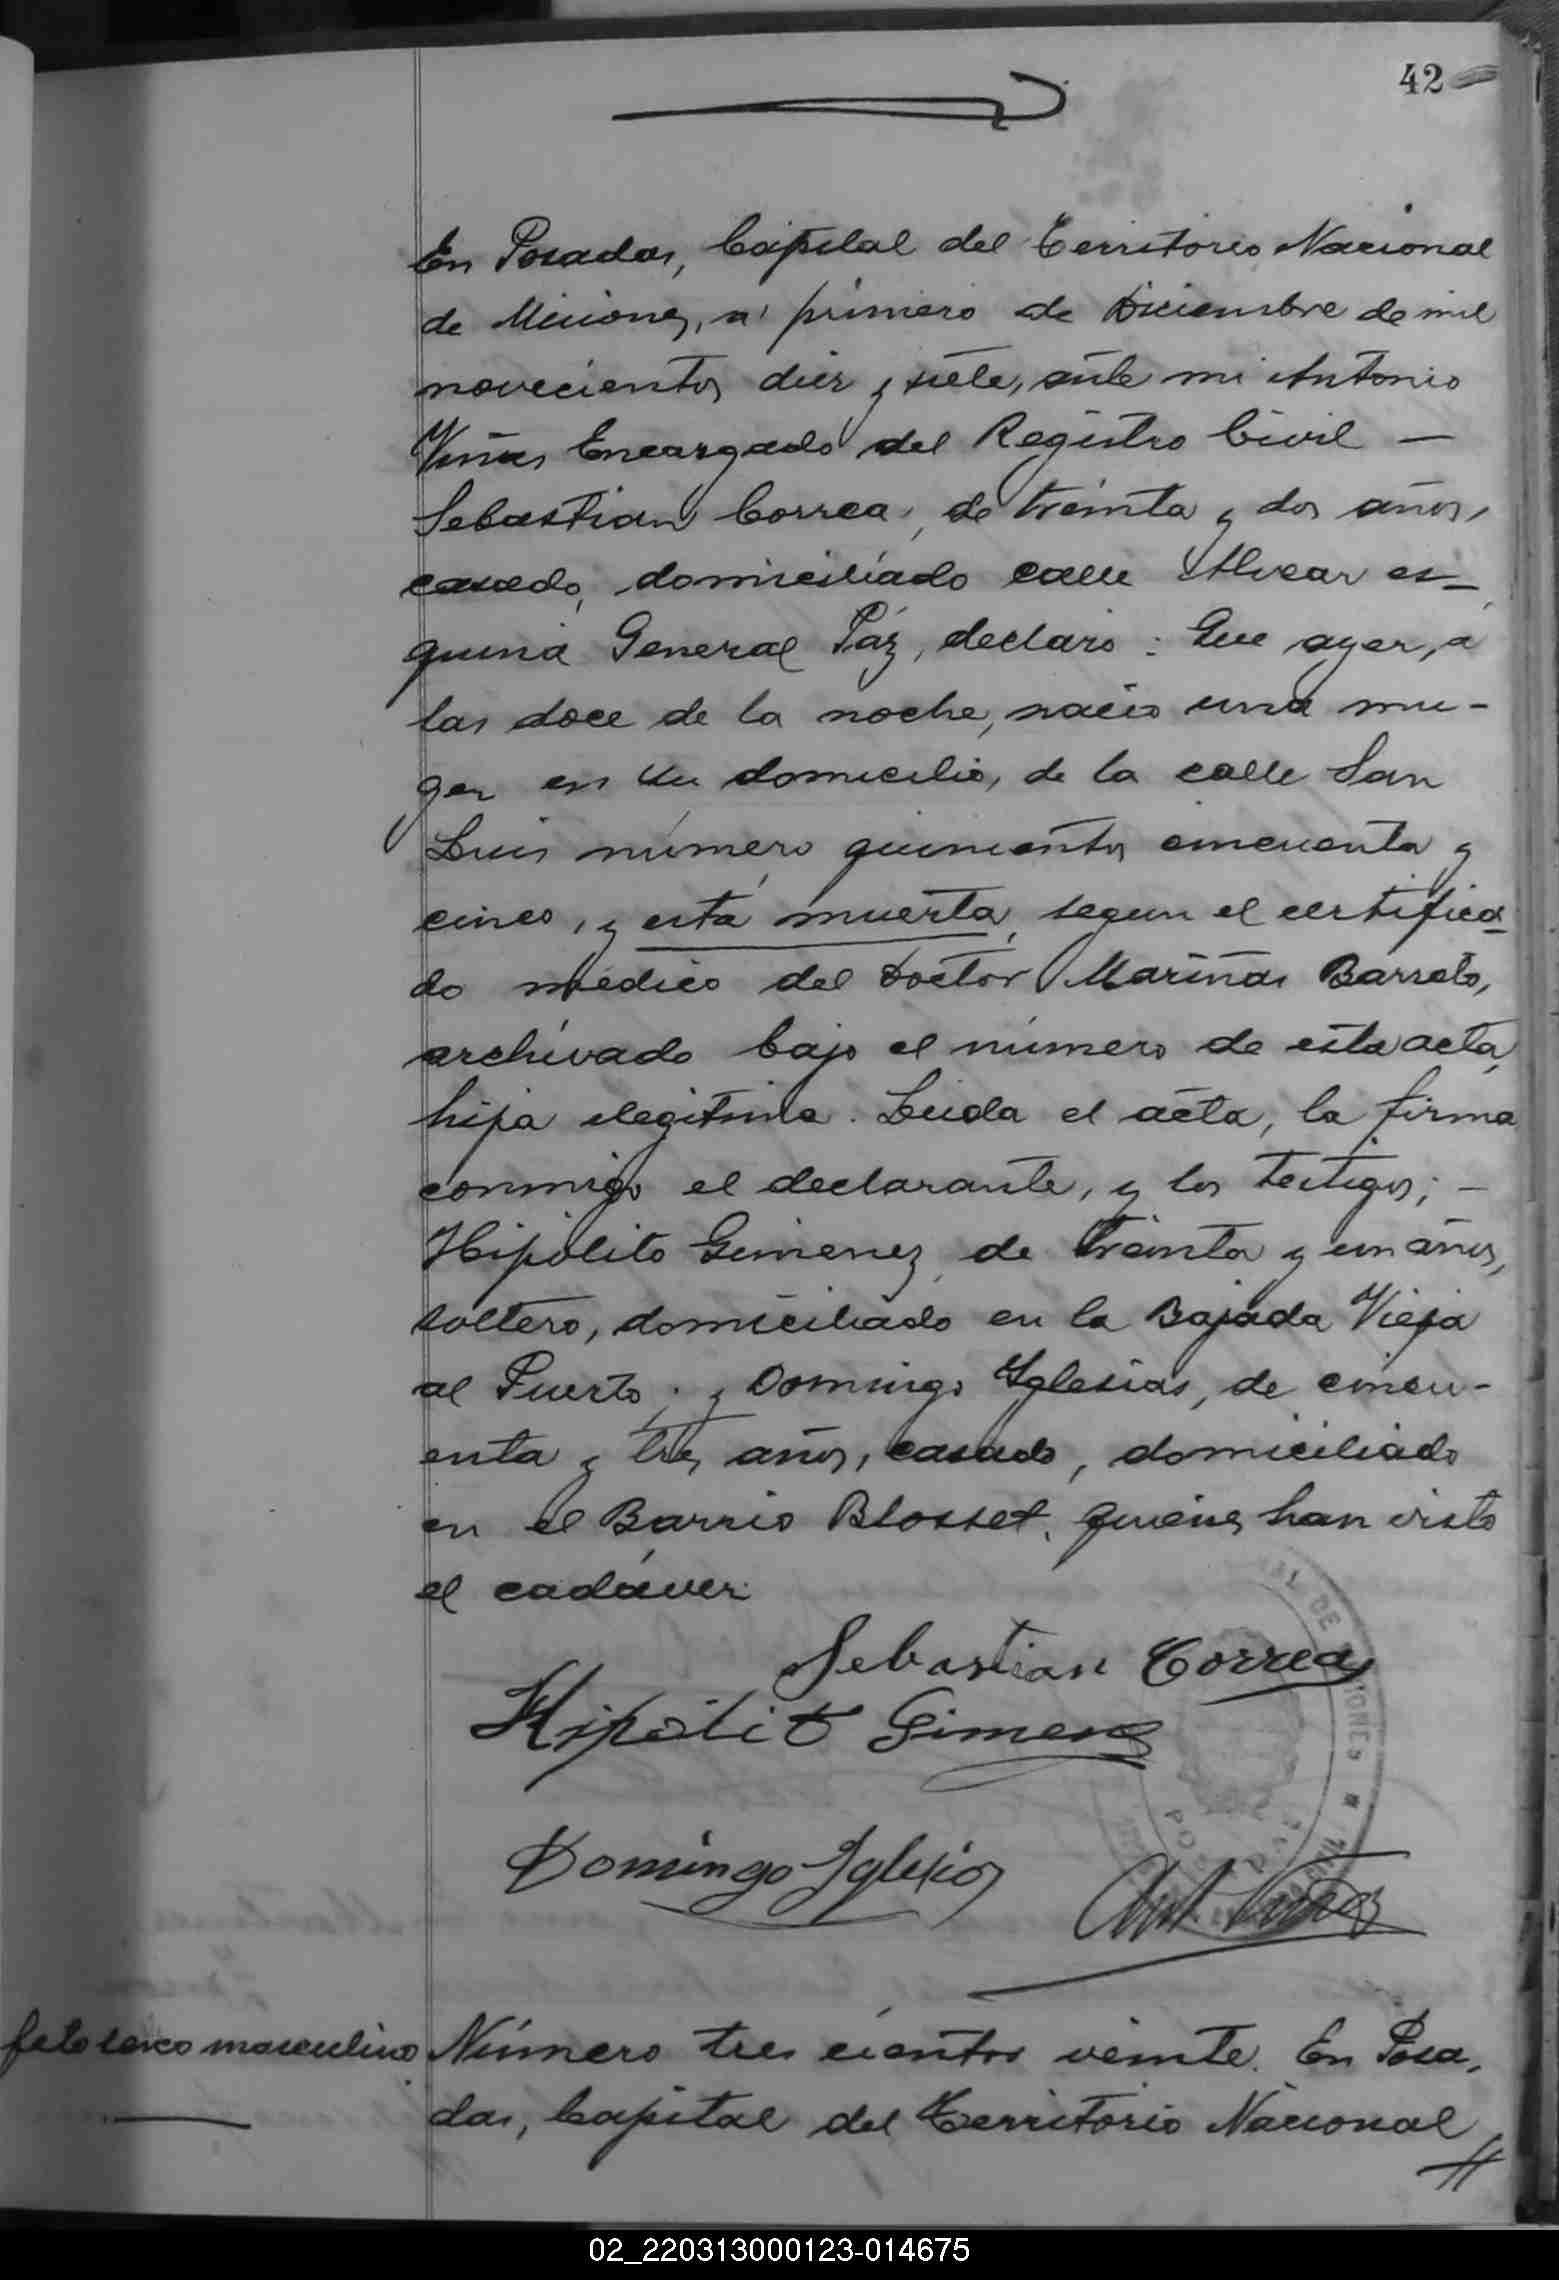 42
En Posadas, Capital del Territorio Nacional
de Misiones, a primero de Diciembre de mil
novecientos diez y siete, ante mi Antonio
Viñas Encargado del Registro Civil —
Sebastian Correa, de treinta y dos años,
casado, domiciliado calle Alvear es-
quina General Páz, declaró: Que ayer, a
las doce de la noche, nació una mu-
ger en su domicilio, de la calle San
Luis número quinientos cincuenta y
cinco, y está muerta, segun el certifica-
do médico del Doctor Mariñas Barreto,
archivado bajo el número de esta acta,
hija ilegitima. Leida el acta, la firma
conmigo el declarante, y los testigos; —
Hipólito Gimenez, de treinta y un años,
soltero, domiciliado en la Bajada Vieja
al Puerto; y Domingo Yglesias, de cincu-
enta y tres años, casado, domiciliado
en el Barrio Blosset, quienes han visto
el cadáver.
Sebastian Correa
Hipolito Gimenez
Domingo Yglesias
Ant Viñas
DE MISIONES
feto sexo masculino
Número tres cientos veinte. En Posa-
das, Capital del Territorio Nacional
02_220313000123-014675